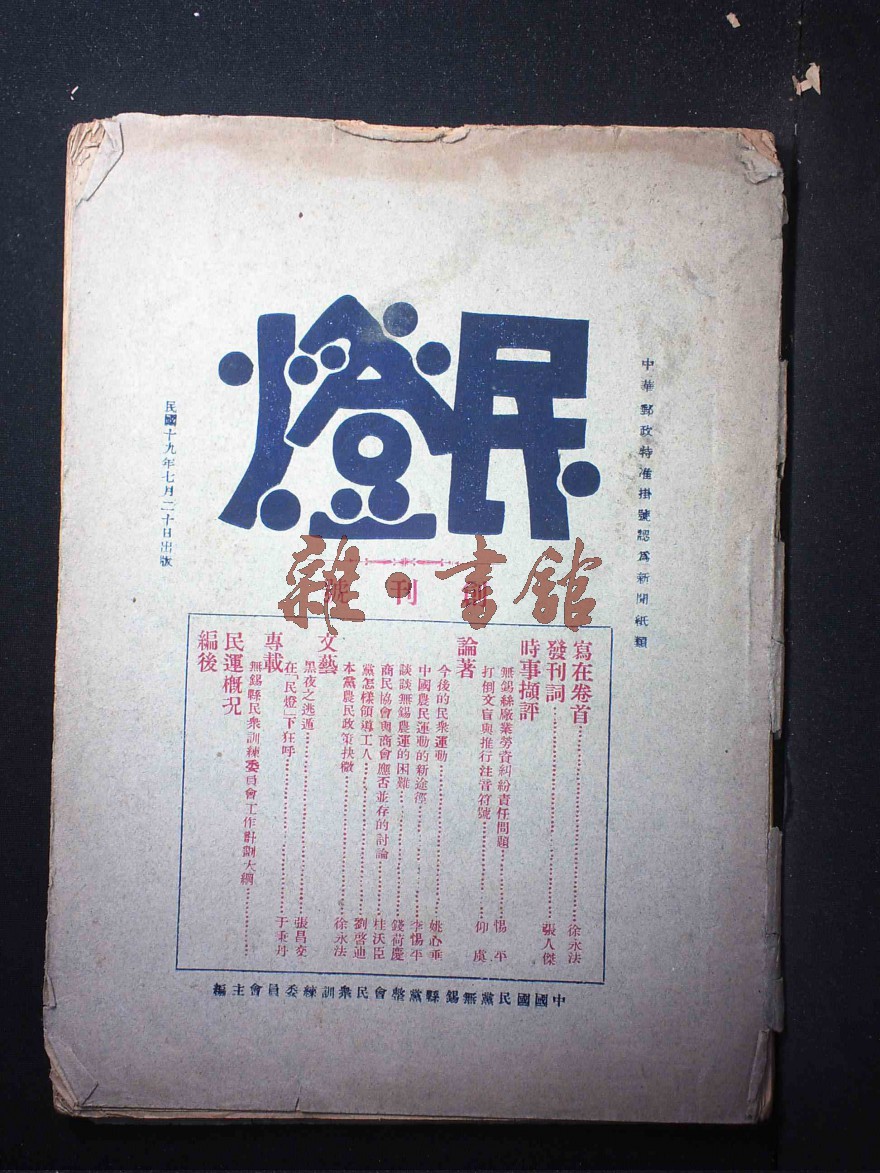 民燈
中華郵政特准掛號認爲新聞紙類
民國十九年七月二十日出版
創刊號
雜·書館
寫在卷首……徐永法
發刊詞……張人傑
時事擷評
無錫絲廠業勞資糾紛責任問題……惕平
打倒文盲與推行注音符號……仰虞
論著
今後的民衆運動……姚心垂
中國農民運動的新途徑……李惕平
談談無錫農運的困難……錢荷慶
商民協會與商會應否並存的討論……桂沃臣
黨怎樣領導工人……劉啓迪
本黨農民政策抉微……徐永法
文藝
黑夜之逃遁……張昌
在「民燈」下狂呼……于秉丹
專載
無錫縣民衆訓練委員會工作計劃大綱……
民運概况
編後
中國國民黨無錫縣黨整會民衆訓練委員會主編